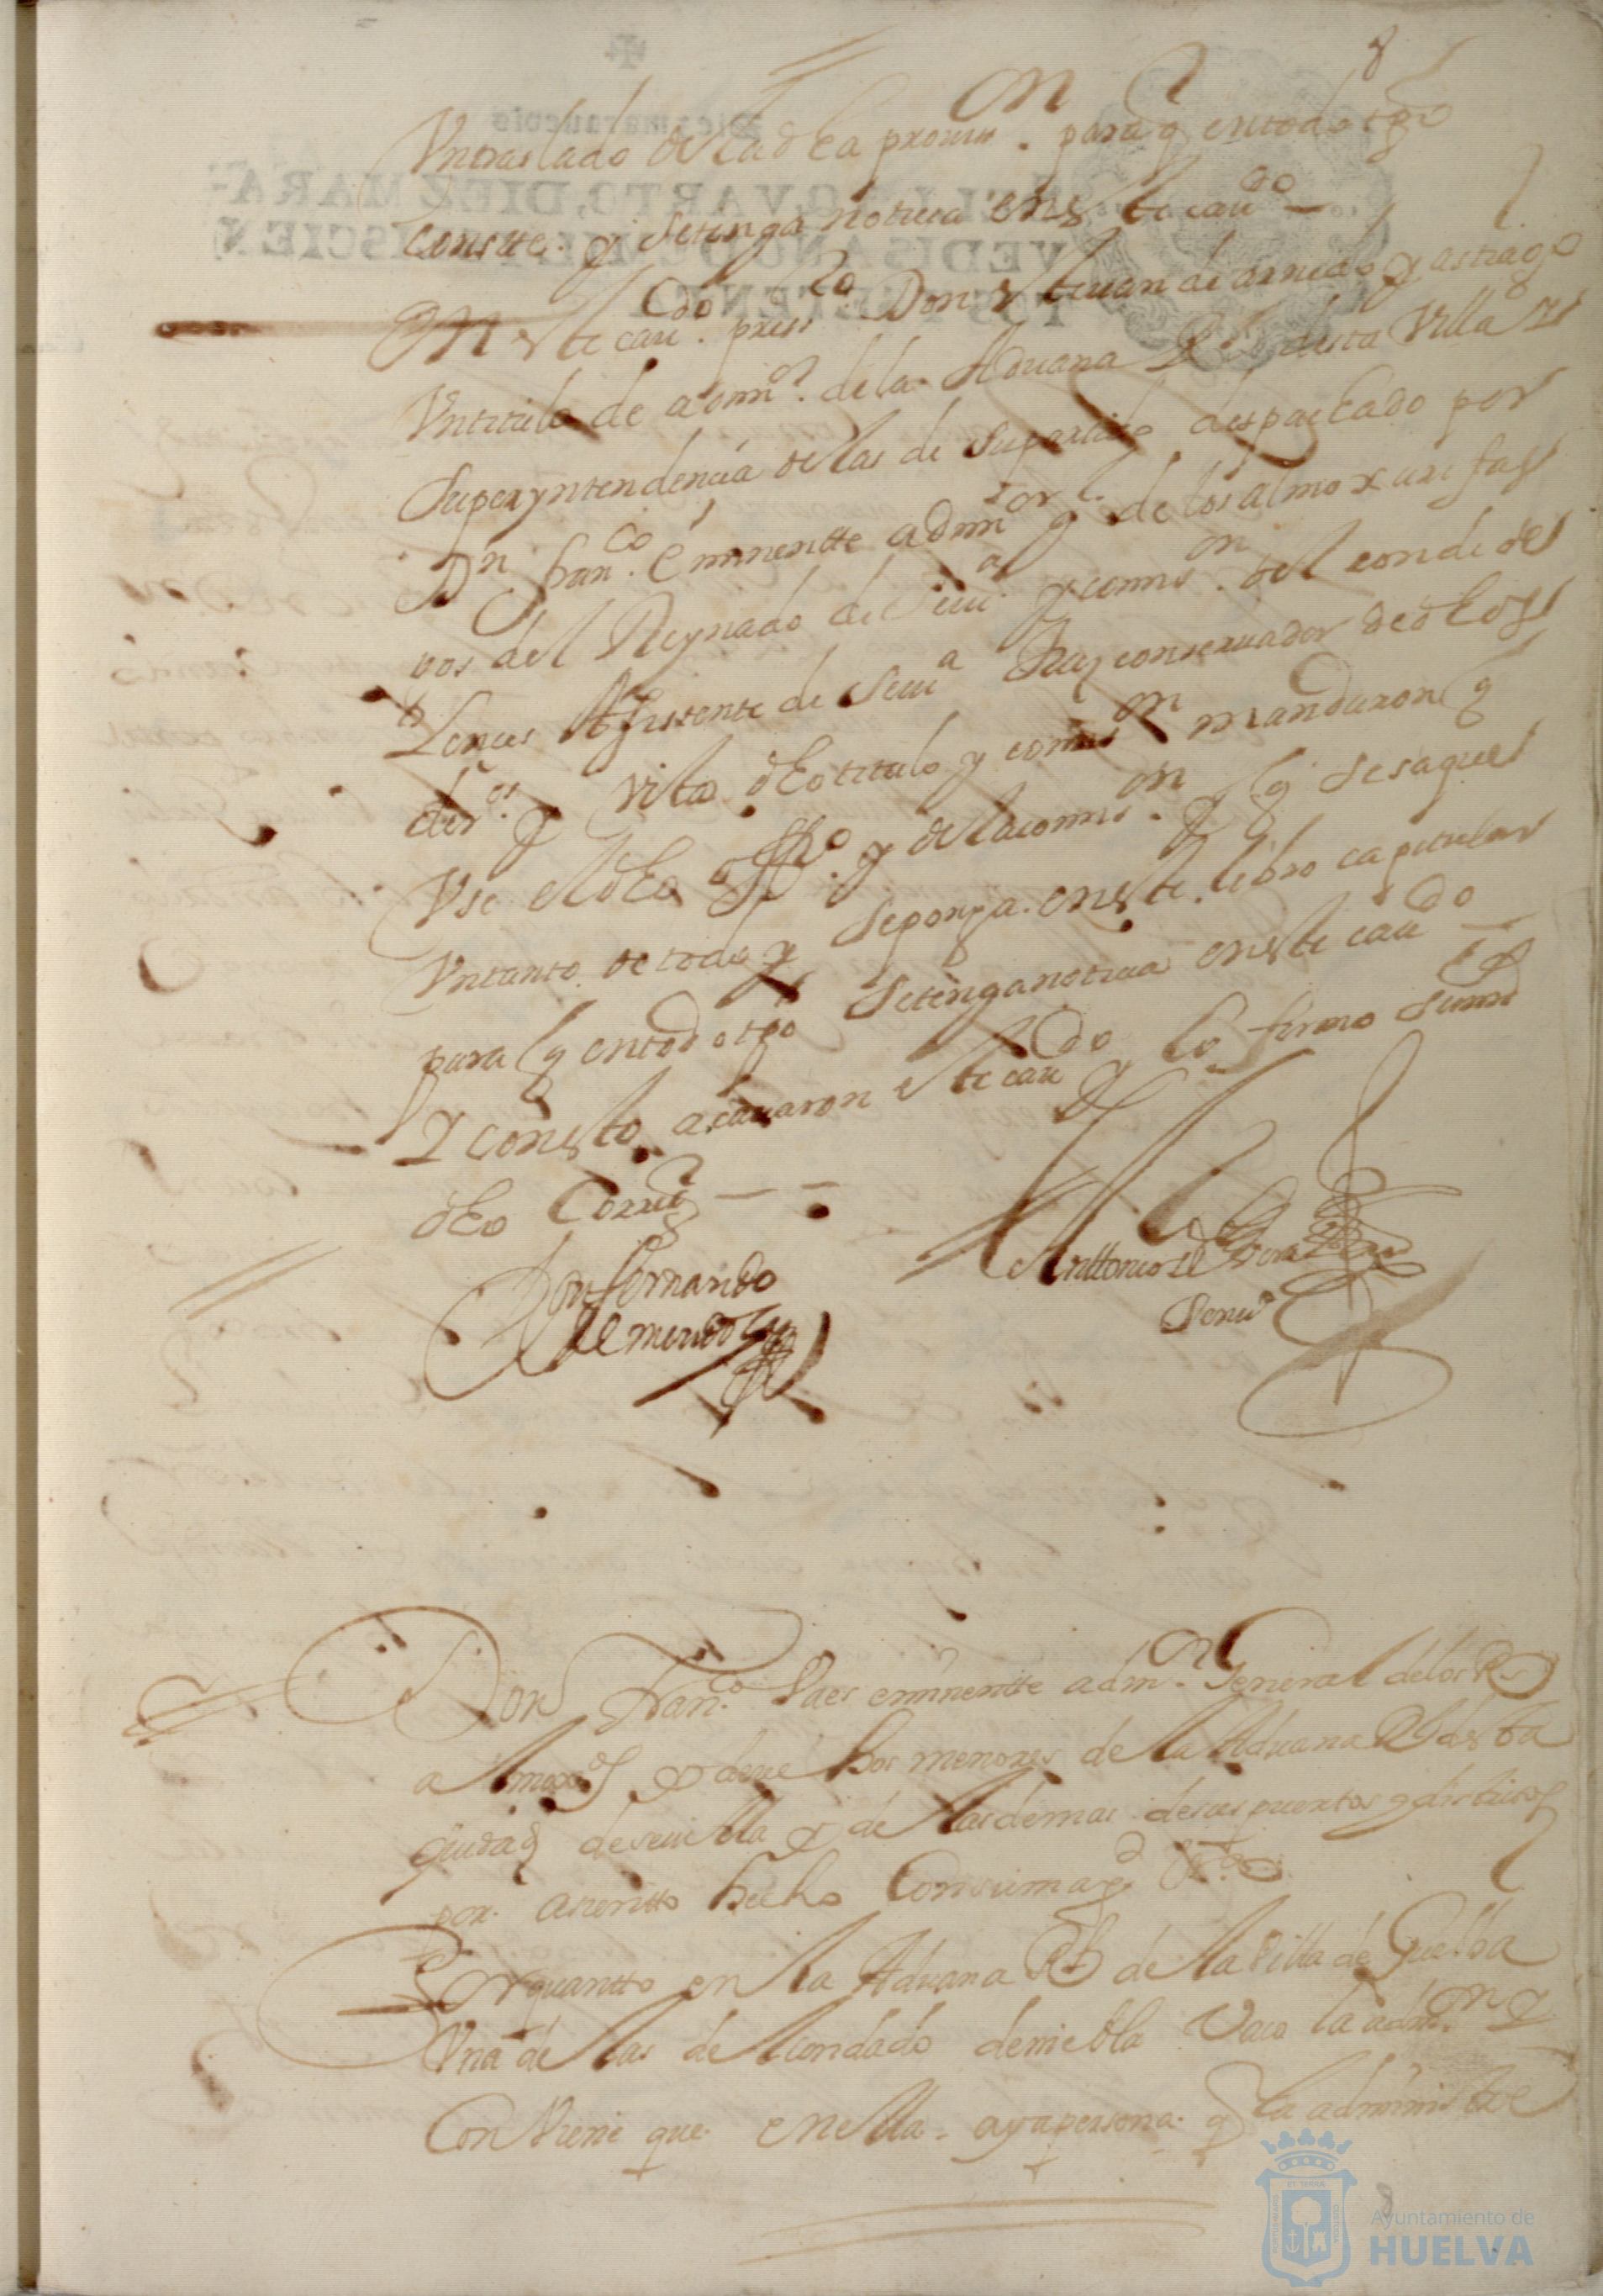 8
Vn traslado de la dha provis.on para q en todo tpo
conste y se tenga noticia en este caudo
En este cau.do press.to Don esteuan de arnedo y astiago
Vn titulo de admr. de la Aduana Rl desta Villa y
superyntendencia de las de su partido despachado por
Dn fran.co Eminentte admor gl de los almoxarifas
gos del Reynado de Seua y comis.on del conde de
Lences Assistente de Seuia Juez conseruador de dhos
der.os y visto dho titulo y comis.on mandaron q
Vse el dho offo. y de la comis.on y q se saque
Vn tanto de todo y se ponga en este libro capitular
para q en todo tpo se tenga noticia en este caudo
Y con esto acauaron este caudo y lo firmo su md
dho Corror
Don fernando
de
Anttonio de Vera
Don Fran.co Baes eminentte admr. General de los Rs
almoxdos y derechos menores de la Aduana Rl desta
Ciudad de seuilla y de las demas de sus puertos y distritos
por asientto hecho Con su magd &a
Por quantto en la Aduana Rl de la villa de Guelba
Vna de las del Condado de niebla Vaco la admon y
Conviene que en ella aya persona q la administre
8
Ayuntamiento de
HUELVA